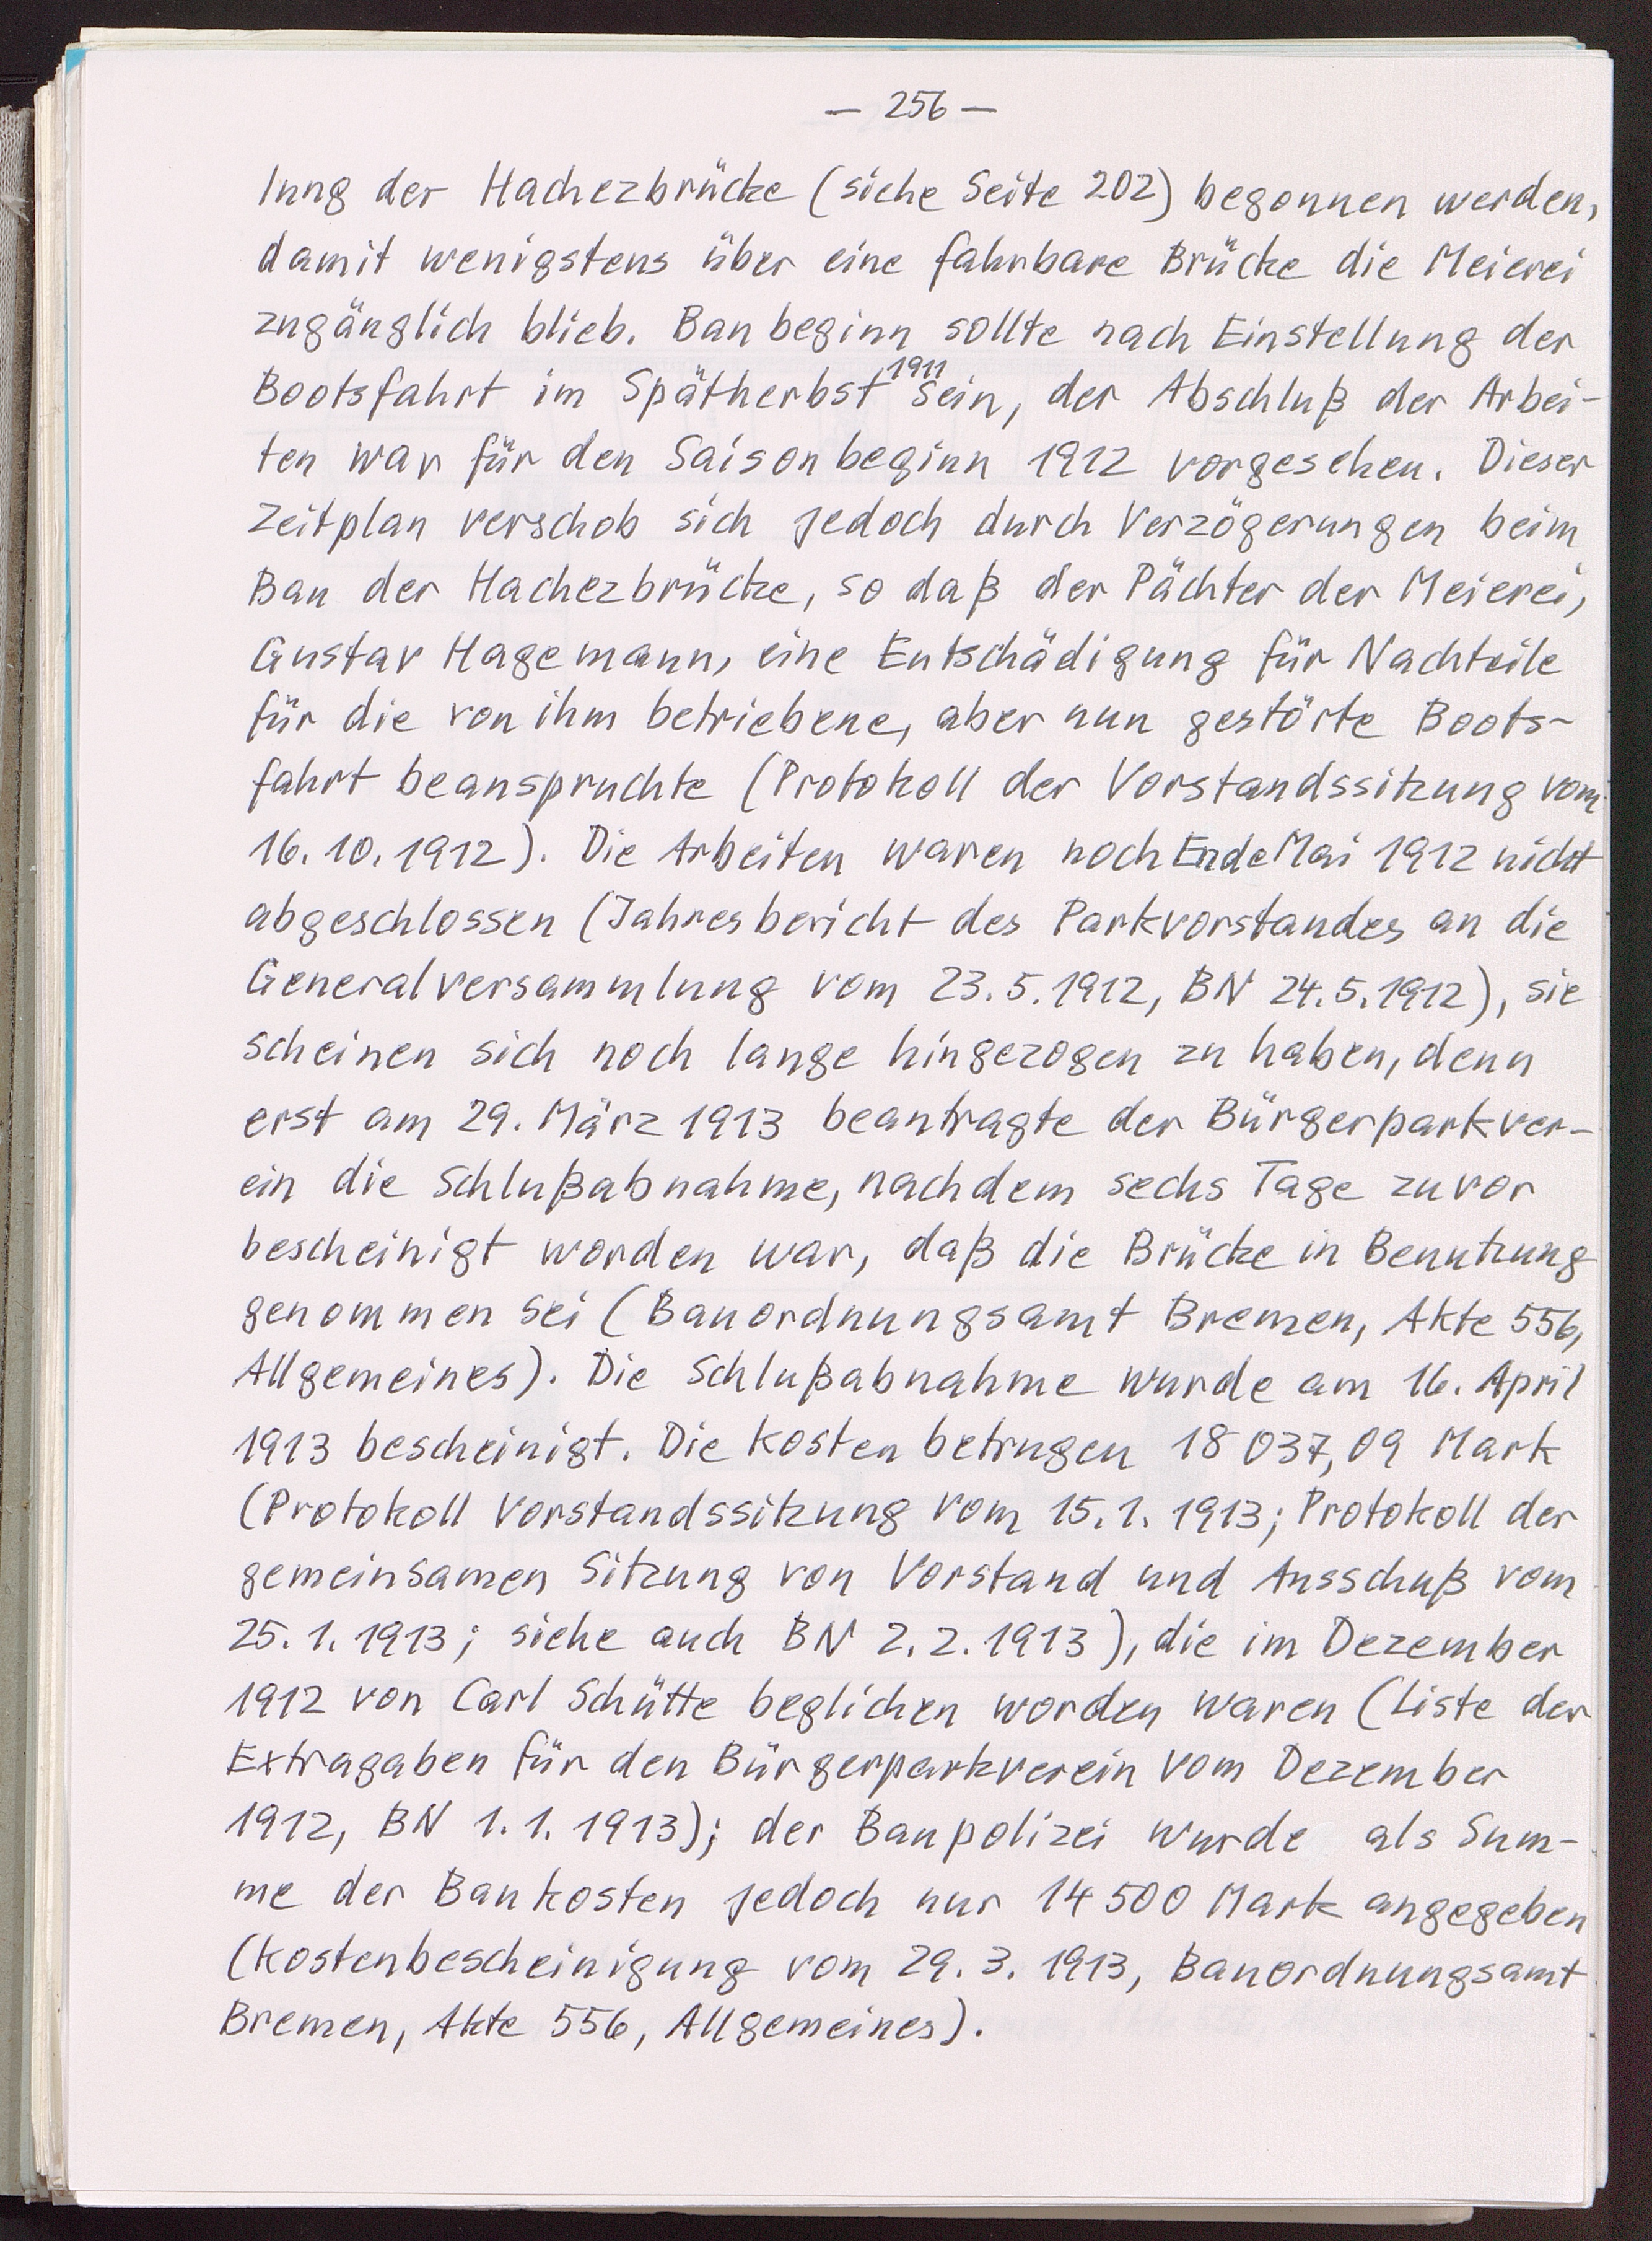 — 256 —
lung der Hachezbrücke (siehe Seite 202) begonnen werden,
damit wenigstens über eine fahrbare Brücke die Meierei
zugänglich blieb. Baubeginn sollte nach Einstellung der
Bootsfahrt im Spätherbst 1911 sein, der Abschluß der Arbei-
ten war für den Saisonbeginn 1912 vorgesehen. Dieser
Zeitplan verschob sich jedoch durch Verzögerungen beim
Bau der Hachezbrücke, so daß der Pächter der Meierei,
Gustav Hagemann, eine Entschädigung für Nachteile
für die von ihm betriebene, aber nun gestörte Boots-
fahrt beanspruchte (Protokoll der Vorstandssitzung vom
16.10.1912). Die Arbeiten waren noch Ende Mai 1912 nicht
abgeschlossen (Jahresbericht des Parkvorstandes an die
Generalversammlung vom 23.5.1912, BN 24.5.1912), sie
scheinen sich noch lange hingezogen zu haben, denn
erst am 29. März 1913 beantragte der Bürgerparkver-
ein die Schlußabnahme, nachdem sechs Tage zuvor
bescheinigt worden war, daß die Brücke in Benutzung
genommen sei (Bauordnungsamt Bremen, Akte 556,
Allgemeines). Die Schlußabnahme wurde am 16. April
1913 bescheinigt. Die Kosten betrugen 18 037,09 Mark
(Protokoll Vorstandssitzung vom 15.1.1913; Protokoll der
gemeinsamen Sitzung von Vorstand und Ausschuß vom
25.1.1913; siehe auch BN 2.2.1913), die im Dezember
1912 von Carl Schütte beglichen worden waren (Liste der
Extragaben für den Bürgerparkverein vom Dezember
1912, BN 1.1.1913); der Baupolizei wurde als Sum-
me der Baukosten jedoch nur 14 500 Mark angegeben
(Kostenbescheinigung vom 29.3.1913, Bauordnungsamt
Bremen, Akte 556, Allgemeines).